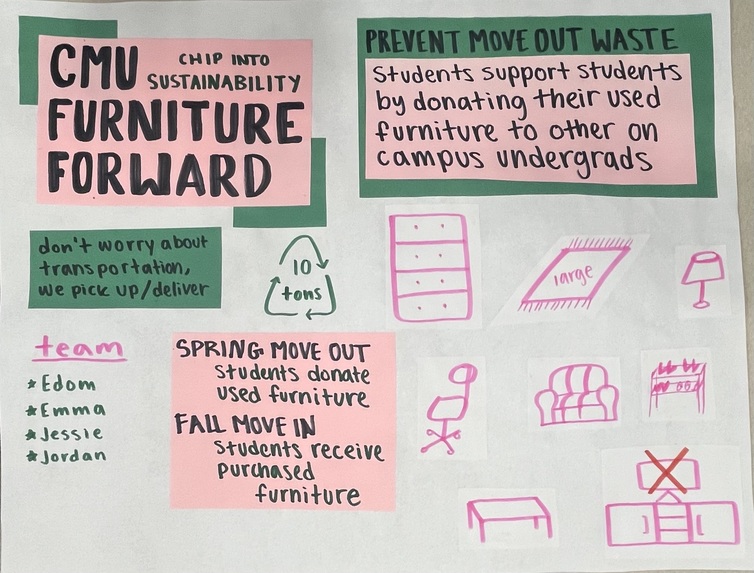 CMU CHIP INTO
SUSTAINABILITY
FURNITURE
FORWARD
PREVENT MOVE OUT WASTE
Students support students
by donating their used
furniture to other on
campus undergrads
don't worry about
transportation,
we pick up/deliver
10
tons
large
team
* Edom
* Emma
* Jessie
* Jordan
SPRING MOVE OUT
Students donate
used furniture
FALL MOVE IN
Students receive
purchased
furniture